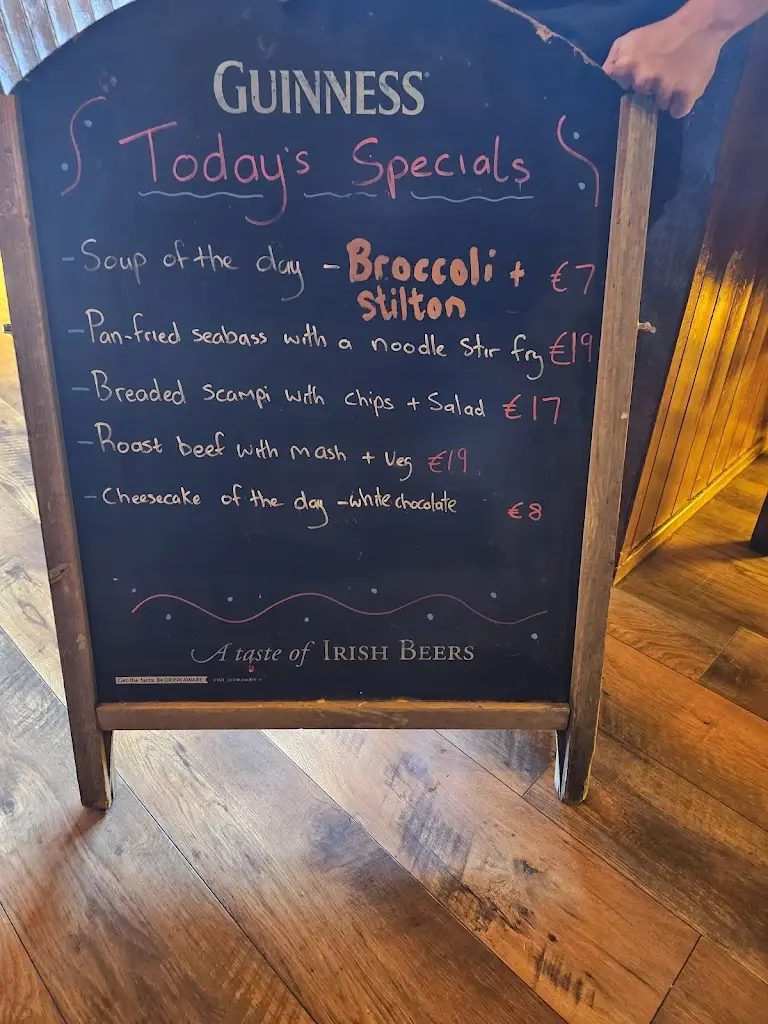 GUINNESS
Today's Specials
- Soup of the day - Broccoli + €7
stilton
- Pan-fried seabass with a noodle stir fry €19
- Breaded scampi with chips + Salad €17
- Roast beef with mash + veg €19
- Cheesecake of the day - white chocolate €8
A taste of IRISH BEERS
Get the facts. Be DRINKAWARE